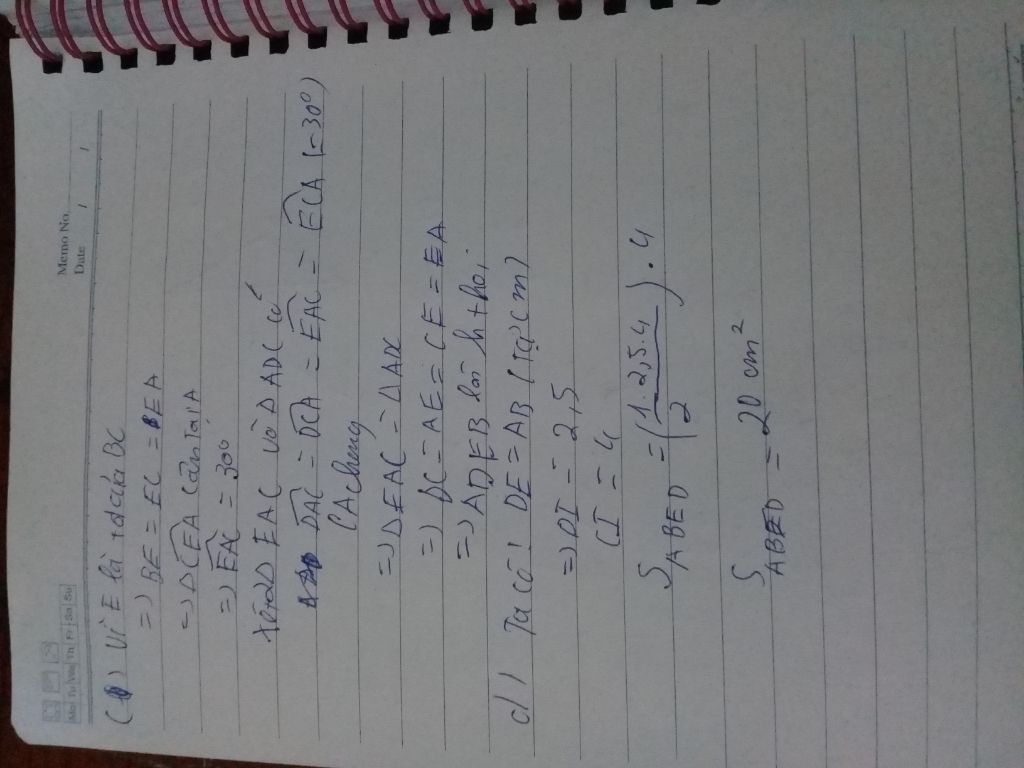 Memo No.
Date / /
Mo Tu We Th Fr Sa Su
c) Vì E là t điểm BC
=> BE = EC = EA
=> Δ CEA cân tại A
=> EAC = 30°
Xét Δ EAC và Δ ADC có
DAC = DCA = EAC = ECA (=30°)
CA chung
=> Δ EAC = Δ ADC
=> DC = AE = CE = EA
=> ADEB là h thoi
d) Ta có: DE = AB
=> DI = 2,5
CI = 4
S ABED = (1.2,5.4 / 2) . 4
S ABED = 20 cm²